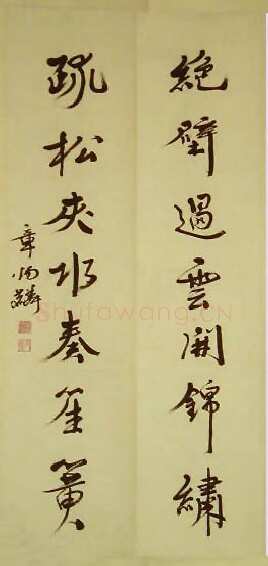 絶壁過雲開錦繡
疏松夾水奏笙簧
章炳麟
Shufawang.CN